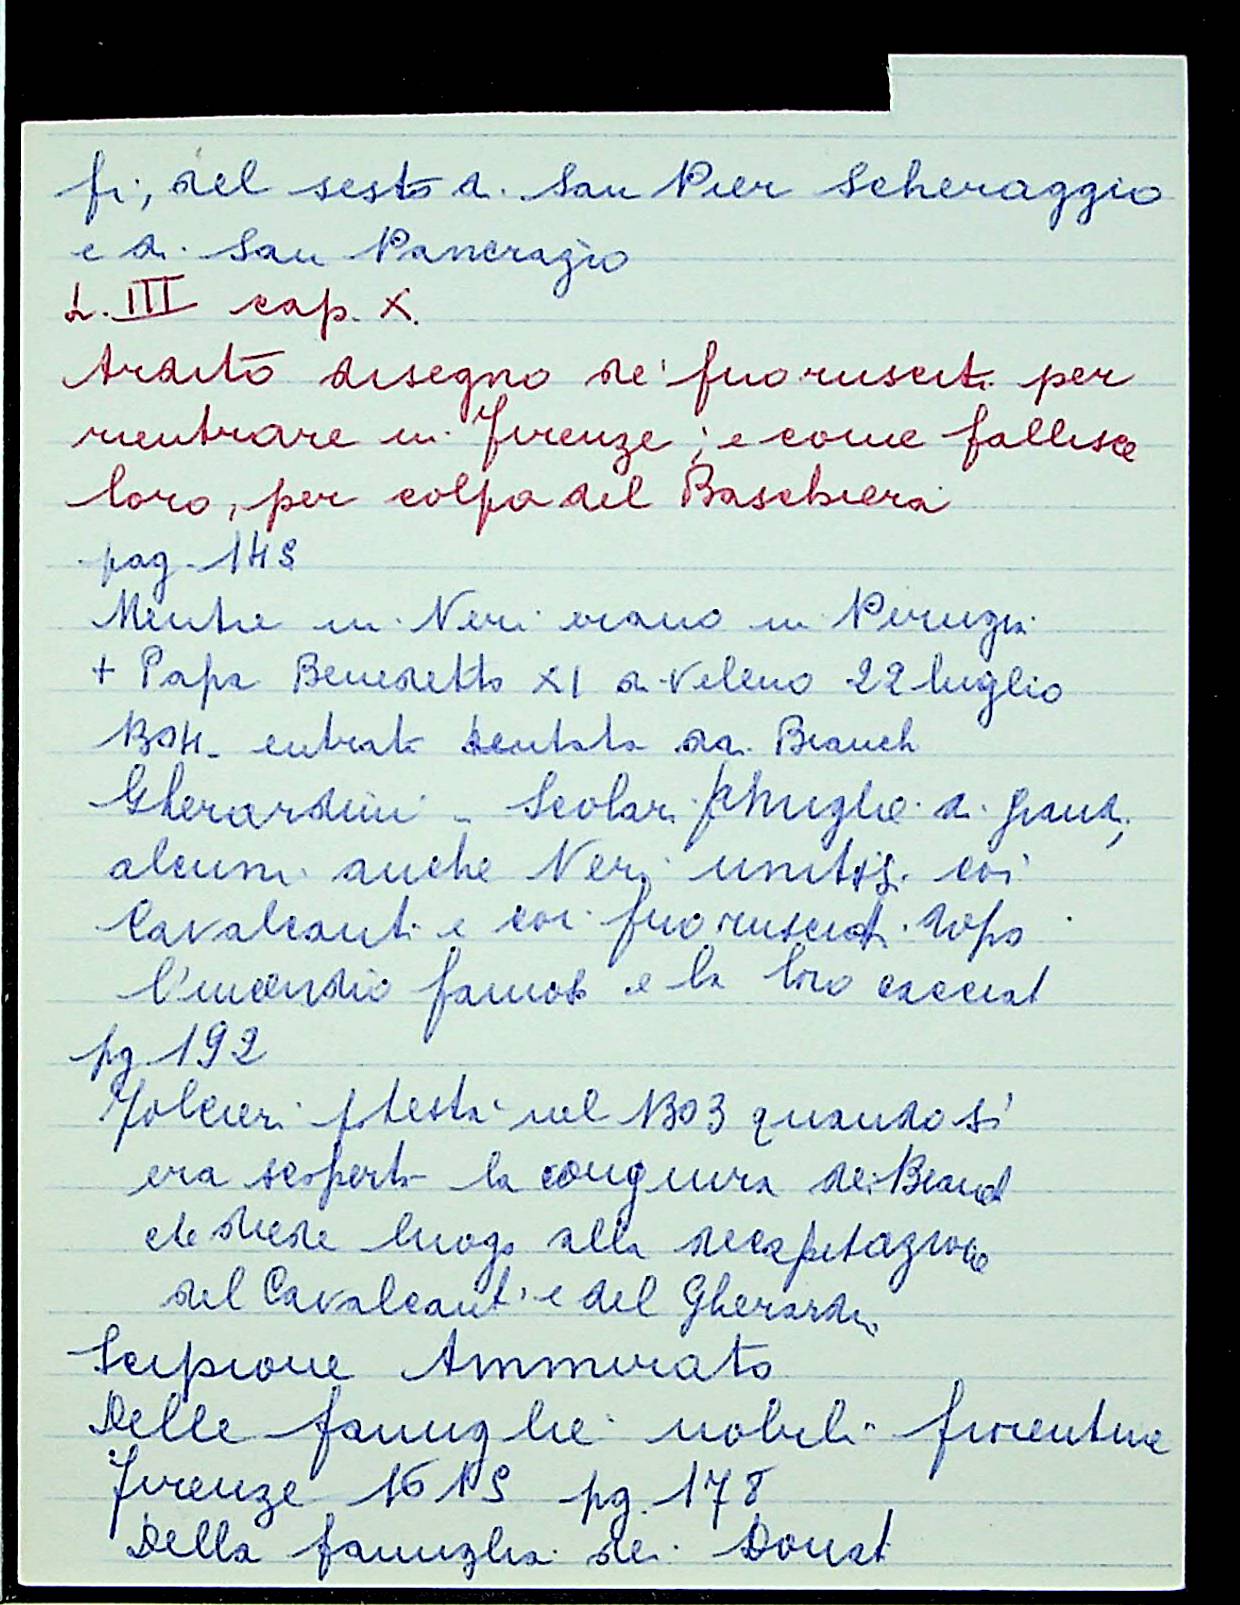 fi, del sesto di San Pier Scheraggio
e di San Pancrazio
L. III cap. X.
Ardito disegno de' fuorusciti per
rientrare in Firenze; e come fallisce
loro, per colpa del Baschiera
pag. 145
Mentre in Neri erano in Perugia
+ Papa Benedetto XI di veleno 22 luglio
1304 - entrata tentata dai Bianchi
Gherardini - Scolari famiglie di grandi,
alcuni anche Neri unitisi coi
Cavalcanti e coi fuorusciti dopo
l'incendio famoso e la loro cacciata
pg. 192
Folcieri potestà nel 1303 quando si
era scoperta la congiura dei Bianchi
che diede luogo alla decapitazione
del Cavalcanti e del Gherardini
Scipione Ammirato
Delle famiglie nobili fiorentine
Firenze 1615 pg. 178
Della famiglia dei Donati